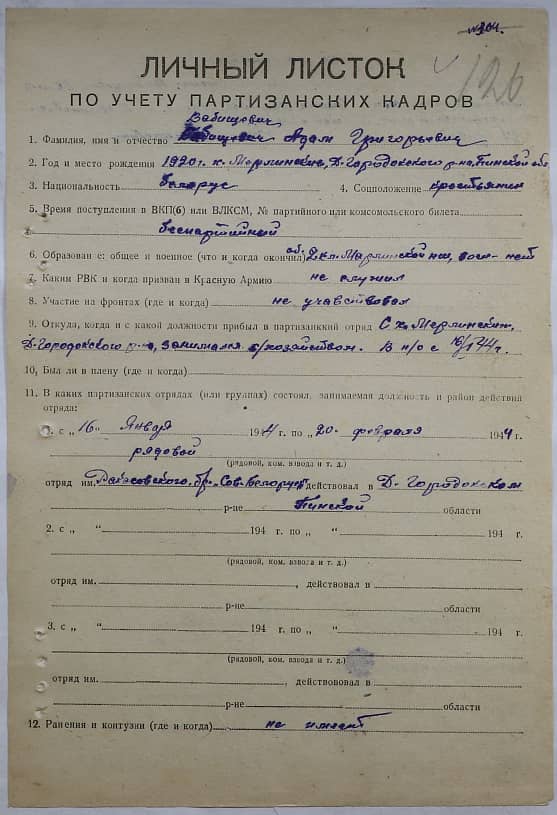 №304.
126
ЛИЧНЫЙ ЛИСТОК
ПО УЧЕТУ ПАРТИЗАНСКИХ КАДРОВ
Вабищевич
1. Фамилия, имя и отчество Адам Григорьевич
2. Год и место рождения 1920 г. х. Мерлинские, Д. Городокского р-на, Пинской обл
3. Национальность белорус 4. Соцположение крестьянин
5. Время поступления в ВКП(б) или ВЛКСМ, № партийного или комсомольского билета
беспартийный
6. Образован е: общее и военное (что и когда окончил) об. 2 кл. Мерлинской нш, воен- нет
7. Каким РВК и когда призван в Красную Армию не служил
8. Участие на фронтах (где и когда) не учавствовал
9. Откуда, когда и с какой должности прибыл в партизанский отряд С х. Мерлинских,
Д-Городокского р-на, занимался с/хозяйством. В п/о с 16/I 44 г.
10. Был ли в плену (где и когда)
11. В каких партизанских отрядах (или группах) состоял, занимаемая должность и район действия
отряда:
1. с „16" Января 1944 г. по „20" февраля 1944 г.
рядовой
(рядовой, ком. взвода и т. д.)
отряд им. бр. „Сов. Белорусь" действовал в Д-Городокском
р-не Пинской области
2. с „ " 194 г. по „ " 194 г.
(рядовой, ком. взвода и т. д.)
отряд им. , действовал в
р-не области
3. с „ " 194 г. по „ " 194 г.
(рядовой, ком. взвода и т. д.)
отряд им. , действововал в
р-не области
12. Ранения и контузии (где и когда) не имеет